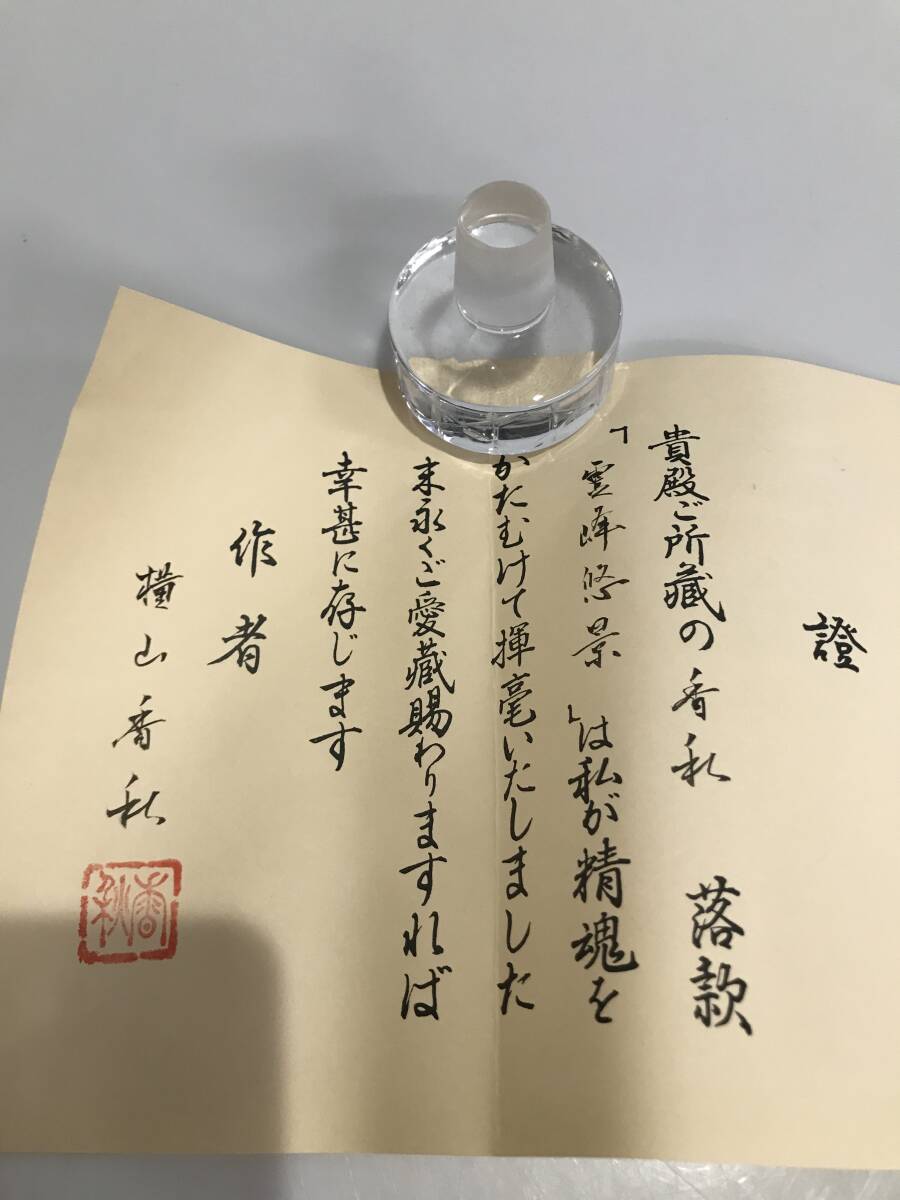 證
貴殿ご所蔵の香秋 落款
「雲峰悠景」は私が精魂を
かたむけて揮毫いたしました
末永くご愛蔵賜わりますれば
幸甚に存じます
作者
横山香秋
香秋